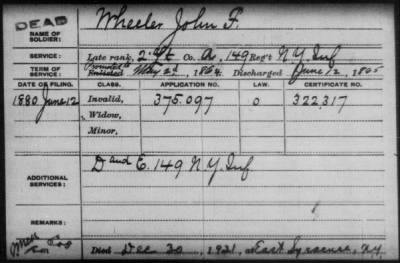 DEAD
NAME OF SOLDIER: Wheeler John F.
SERVICE: Late rank, 2" Lt Co. A, 149 Reg't N.Y. Inf
TERM OF SERVICE: Enlisted May 2d, 1864. Discharged June 12, 1865
DATE OF FILING. CLASS. APPLICATION NO. LAW. CERTIFICATE NO.
1880 June 12 Invalid, 375.097 O 322,317
Widow,
Minor,
ADDITIONAL SERVICES: D and E. 149 N.Y. Inf
REMARKS:
Died Dec 30, 1921, at East Syracuse, N.Y.